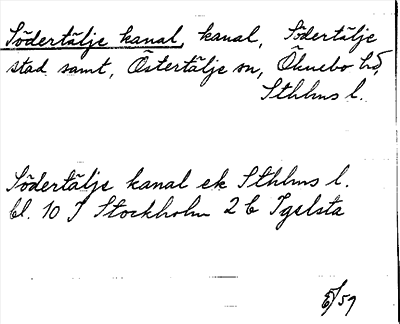 Södertälje kanal, kanal, Södertälje
stad samt, Östertälje sn, Öknebo hd,
Sthlms l.
Södertälje kanal ek Sthlms l.
bl. 10 I Stockholm 2 b Igelsta
/59